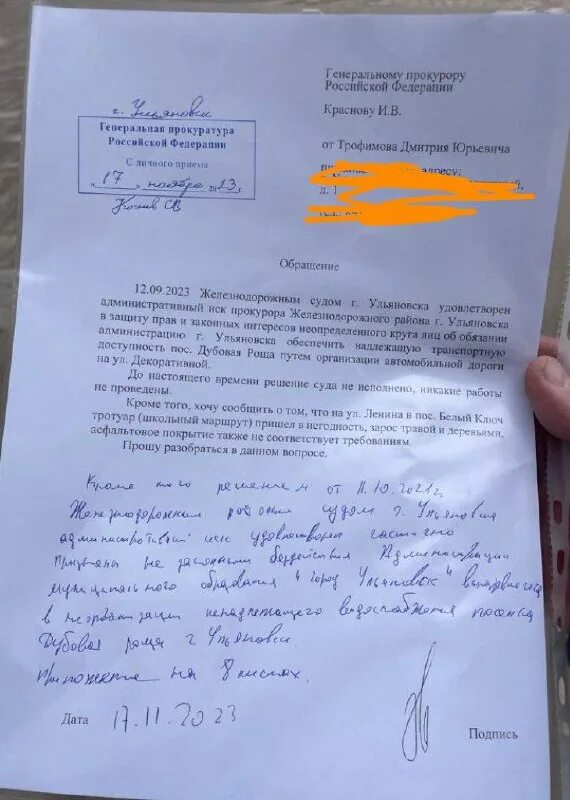 Генеральному прокурору
Российской Федерации
Краснову И.В.
от Трофимова Дмитрия Юрьевича
адресу:
д. 1
г. Ульяновск
Генеральная прокуратура
Российской Федерации
С личного приема
"17" ноября 2023 г.
Обращение
12.09.2023 Железнодорожным судом г. Ульяновска удовлетворен
административный иск прокурора Железнодорожного района г. Ульяновска
в защиту прав и законных интересов неопределенного круга лиц об обязании
администрацию г. Ульяновска обеспечить надлежащую транспортную
доступность пос. Дубовая Роща путем организации автомобильной дороги
на ул. Декоративной.
До настоящего времени решение суда не исполнено, никакие работы
не проведены.
Кроме того, хочу сообщить о том, что на ул. Ленина в пос. Белый Ключ
тротуар (школьный маршрут) пришел в негодность, зарос травой и деревьями,
асфальтовое покрытие также не соответствует требованиям.
Прошу разобраться в данном вопросе.
Кроме того решением от 11.10.2021г.
Железнодорожным районным судом г. Ульяновска
административный иск удовлетворен частично
Признаны не законными бездействия Администрации
муниципального образования "город Ульяновск"
в неорганизации ненадлежащего водоснабжения поселка
Дубовая роща г. Ульяновск.
Приложение на 8 листах.
Дата 17.11.2023
Подпись